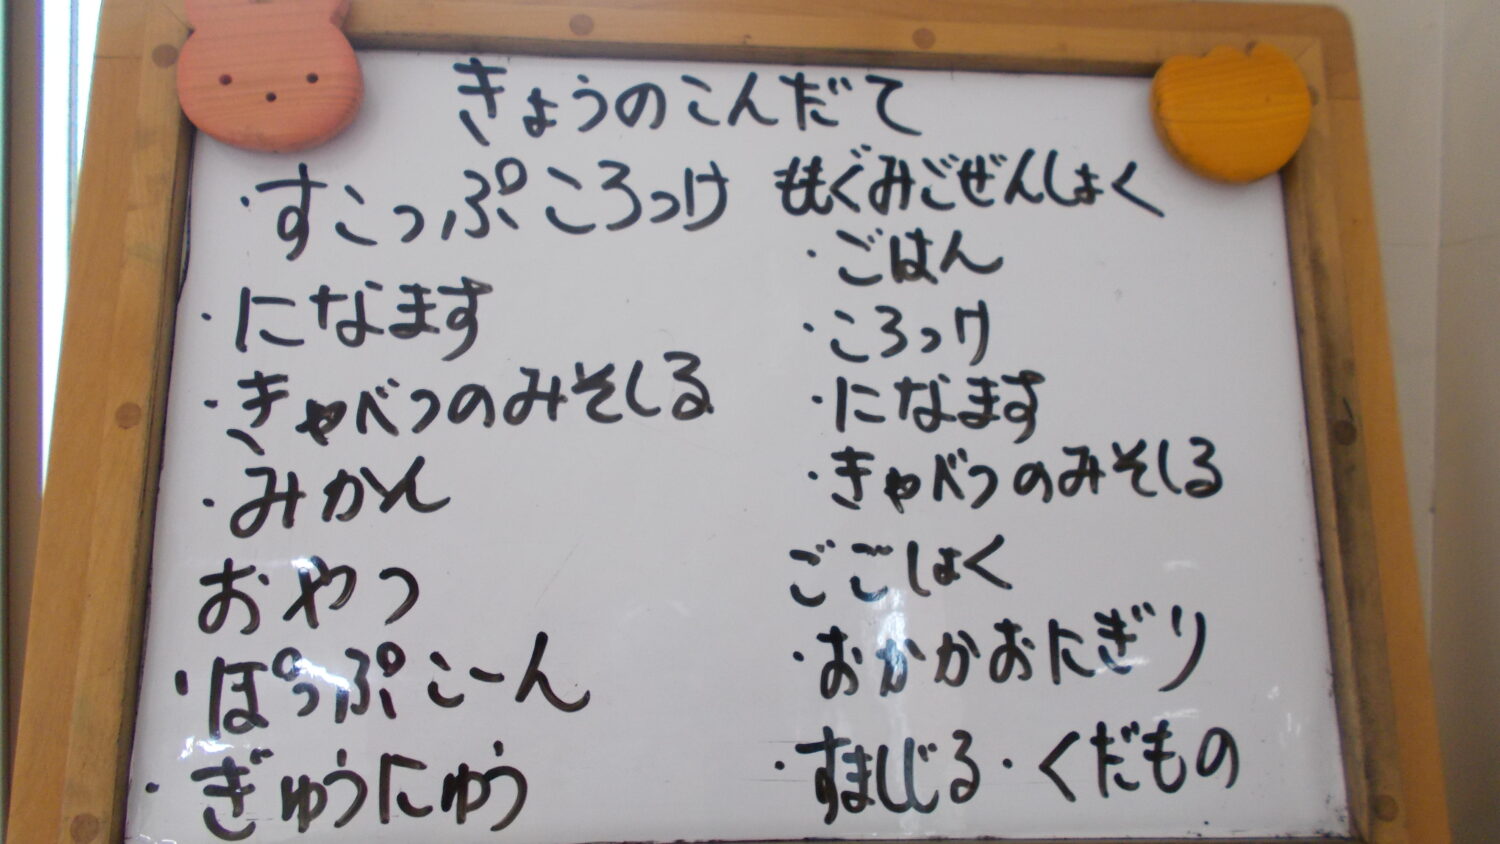 きょうのこんだて
・すこっぷころっけ
・になます
・きゃべつのみそしる
・みかん
おやつ
・ぽっぷこーん
・ぎゅうにゅう
ももぐみごぜんしょく
・ごはん
・ころっけ
・になます
・きゃべつのみそしる
ごごしょく
・おかかおにぎり
・すましじる・くだもの